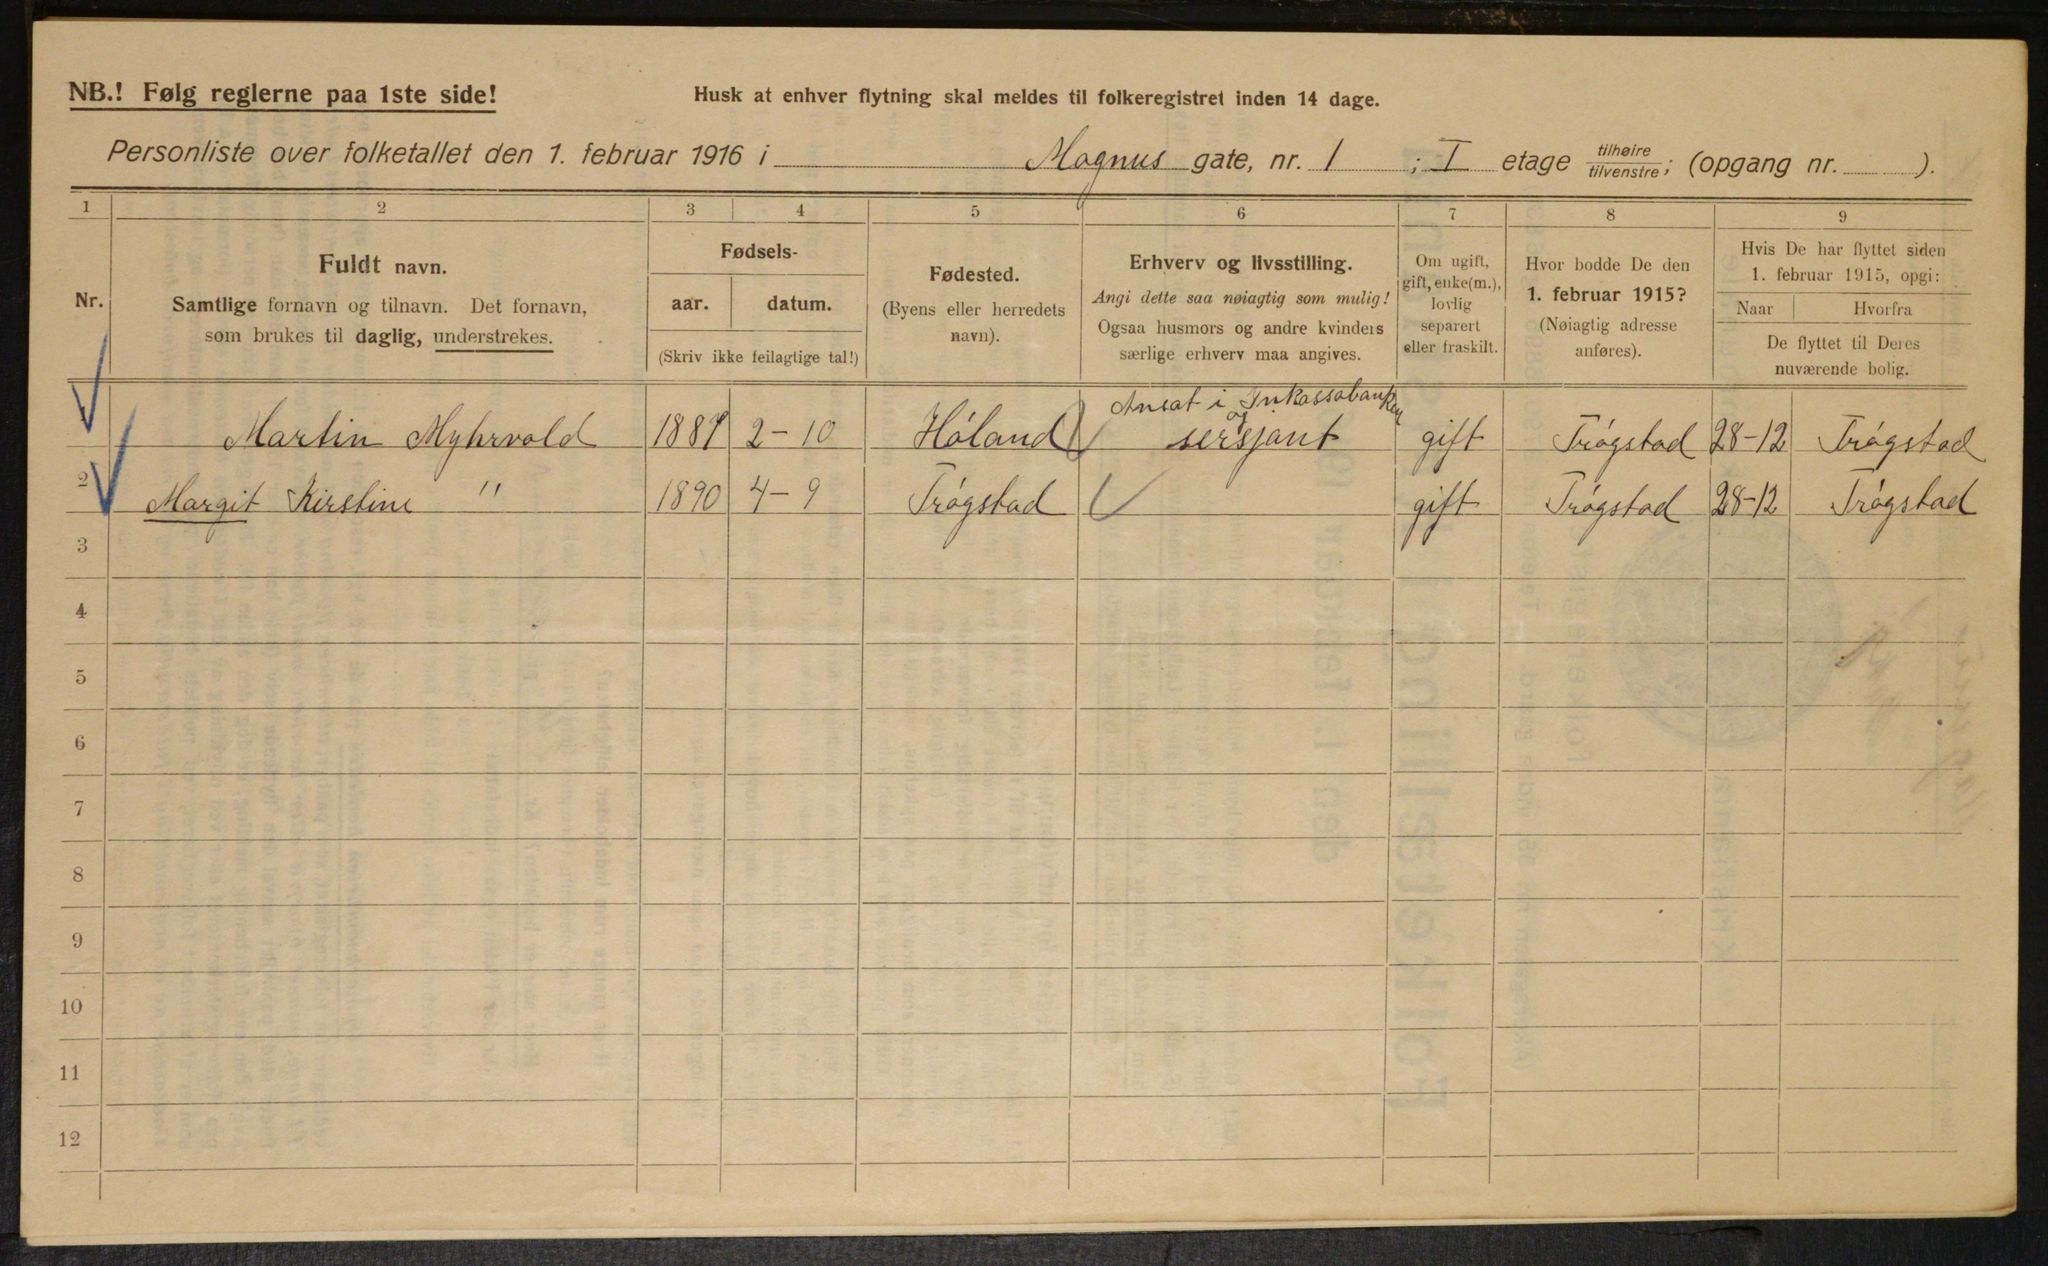 NB.! Følg reglerne paa 1ste side!
Husk at enhver flytning skal meldes til folkeregistret inden 14 dage.
Personliste over folketallet den 1. februar 1916 i Magnus gate, nr. 1 ; I etage tilhøire/tilvenstre; (opgang nr. ).
1 2 3 4 5 6 7 8 9
Nr.
Fuldt navn.
Samtlige fornavn og tilnavn. Det fornavn,
som brukes til daglig, understrekes.
Fødsels-
aar. datum.
(Skriv ikke feilagtige tal!)
Fødested.
(Byens eller herredets
navn).
Erhverv og livsstilling.
Angi dette saa nøiagtig som mulig!
Ogsaa husmors og andre kvinders
særlige erhverv maa angives.
Om ugift,
gift, enke(m.),
lovlig
separert
eller fraskilt.
Hvor bodde De den
1. februar 1915?
(Nøiagtig adresse
anføres).
Hvis De har flyttet siden
1. februar 1915, opgi:
Naar Hvorfra
De flyttet til Deres
nuværende bolig.
Ansat i Inkassobanken
og
Martin Myhrvold 2-10 Høland sersjant gift Trøgstad 28-12 Trøgstad
2 Margit Kirstine " 1890 4-9 Trøgstad gift Trøgstad 28-12 Trøgstad
3
4
5
6
7
8
9
10
11
12